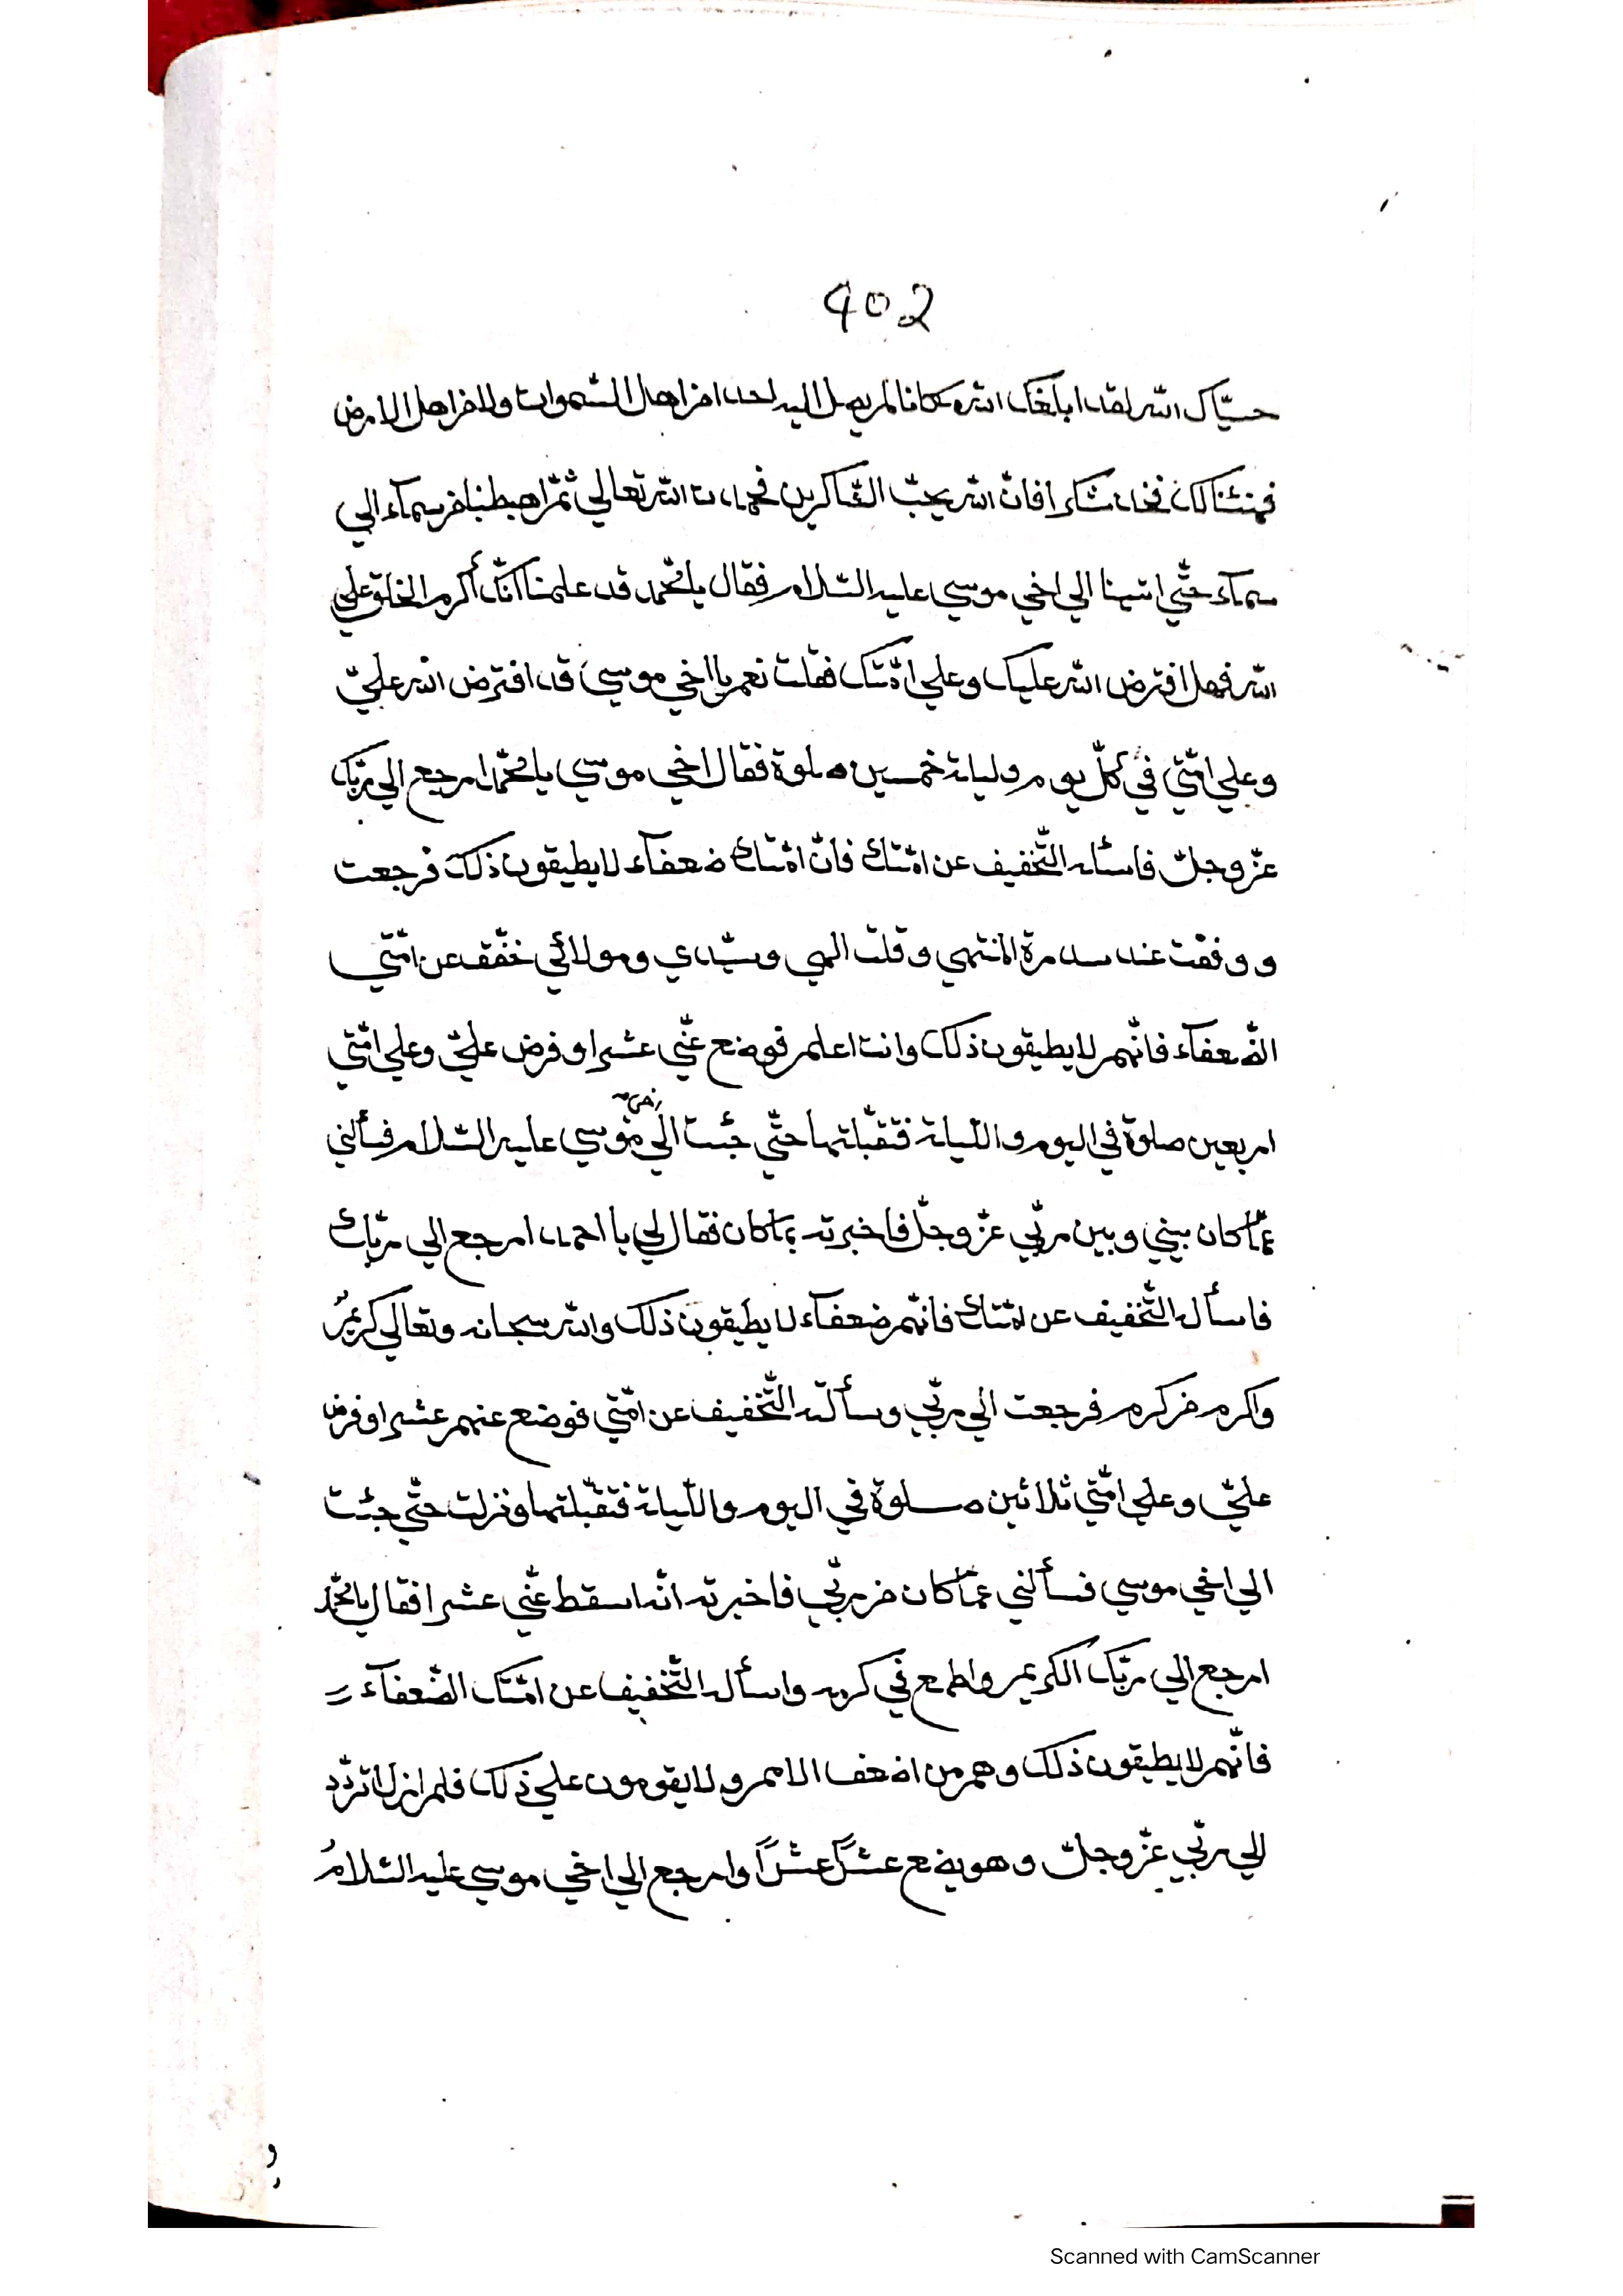 402
حيّاك الله لقد ابلغك الله مكانا لم يصل اليه احد من اهل السّموات ولا من اهل الارض
فهنئنا لك فخذ شاكرا فانّ الله يحبّ الشّاكرين فحمدت الله تعالي ثمّ اهبطنا من سمآء الي
سمآء حتّي اتينا الي اخي موسي عليه السّلام فقال يا محّمد قد علمنا انّك أكرم الخلق علي
الله فهل افترض الله عليك وعلي امّتك فقلت نعم يا اخي موسي قد افترض الله عليّ
وعلي امّتي في كلّ يوم وليلة خمسين صلوة فقال اخي موسي يا محّمد ارجع الي ربّك
عزّ وجلّ فاسئله التّخفيف عن امّتك فانّ امّتك ضعفآء لا يطيقون ذلك فرجعت
ووقفت عند سدرة المنتهي وقلت الهي وسيّدي ومولائي خفّف عن امّتي
الضّعفآء فانّهم لا يطيقون ذلك وانت اعلم فوضع عنّي عشرا وفرض عليّ وعلي امّتي
اربعين صلوة في اليوم والّليلة فتقبّلتها حتّي جئت الي موسي عليه السّلام فسألني
عمّا كان بيني وبين ربّي عزّ وجلّ فاخبرته بما كان فقال لي يا احمد ارجع الي ربّك
فاسأله التّخفيف عن امّتك فانّهم ضعفآء لا يطيقون ذلك والله سبحانه وتعالي كريمٌ
واكرم من كرم فرجعت الي ربّي وسألته التّخفيف عن امّتي فوضع عنهم عشرا وفرض
عليّ وعلي امّتي ثلاثين صلوة في اليوم والّليلة فتقبّلتها ونزلت حتّي جئت
الي اخي موسي فسألني عمّا كان من ربّي فاخبرته انّه اسقط عنّي عشرا فقال يا محّمد
ارجع الي ربّك الكريم واطمع في كرمه واسأله التّخفيف عن امّتك الضّعفآء
فانّهم لا يطيقون ذلك وهم من اضعف الامم ولا يقومون علي ذلك فلم ازل اتردّد
الي ربّي عزّ وجلّ وهو يضع عشرًا عشرًا وارجع الي اخي موسي عليه السّلامُ
Scanned with CamScanner